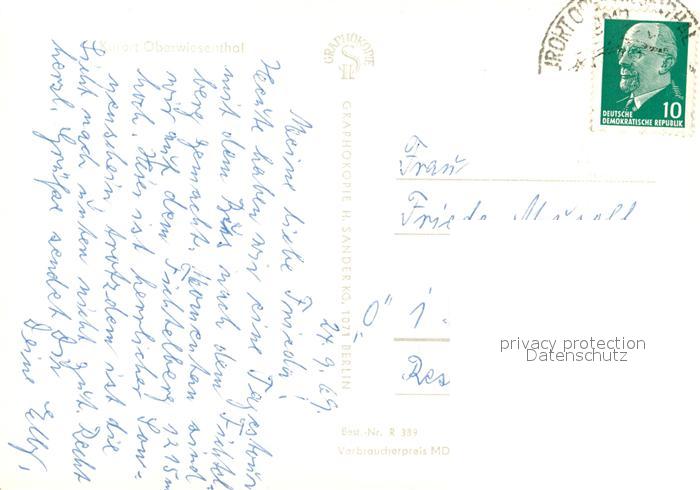 Kurort Oberwiesenthal
24.9.69.
Meine liebe Friedi!
Heute haben wir eine Tagestour
mit dem Bus nach dem Fichtel
berg gemacht. Momentan sind
wir auf dem Fichtelberg 1215 m
hoch. Hier ist herrlicher Son-
nenschein trotzdem ist die
Sicht nach unten nicht gut. Recht
herzl. Grüße sendet Dir
Deine Elly.
GRAPHOKOPIE
GRAPHOKOPIE H. SANDER KG, 1071 BERLIN
Best.-Nr. R 389
Verbraucherpreis MD
KURORT OBERWIESENTHAL
10
DEUTSCHE
DEMOKRATISCHE REPUBLIK
Frau
Friede
privacy protection
Datenschutz